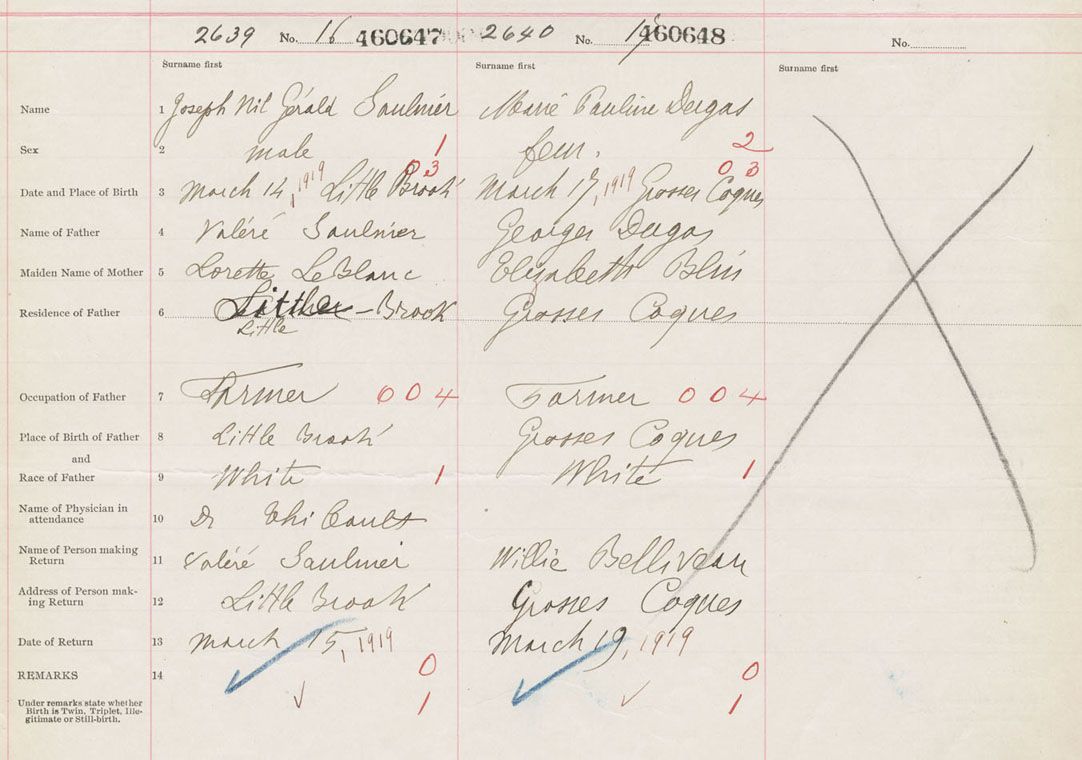 2639 No. 16 460647 2640 No. 460648 No.
Surname first Surname first Surname first
Name 1 Joseph Nil Gérald Saulnier Marie Pauline Dugas
Sex 2 male 1 fem. 2
03 03
Date and Place of Birth 3 March 14, 1919 Little Brook March 17, 1919 Grosses Coques
Name of Father 4 Valéré Saulnier Georges Dugas
Maiden Name of Mother 5 Lorette LeBlanc Elizabeth
Residence of Father 6 Brook Grosses Coques
Little
Occupation of Father 7 Farmer 004 Farmer 004
Place of Birth of Father 8 Little Brook Grosses Coques
and
Race of Father 9 White 1 White 1
Name of Physician in
attendance 10 Dr Thibault
Name of Person making
Return 11 Valéré Saulnier Willie Belliveau
Address of Person mak-
ing Return 12 Little Brook Grosses Coques
Date of Return 13 March 15, 1919 March 19, 1919
REMARKS 14 0 0
Under remarks state whether
Birth is Twin, Triplet, Ille-
gitimate or Still-birth.
1 1